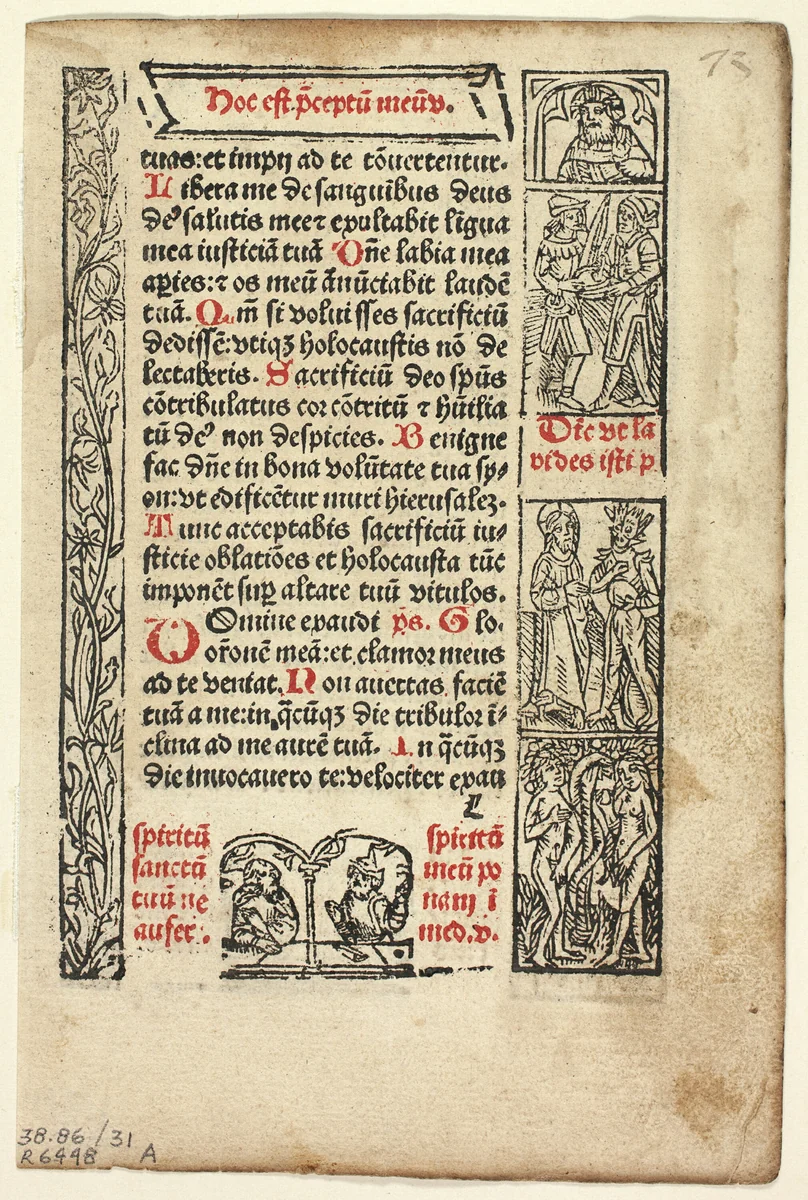 Hoc est p̄ceptū meū v.
tuas: et impij ad te cōuertentur.
Libera me de sanguibus deus
deꝰ salutis mee ⁊ exultabit līgua
mea iusticiā tuā Dn̄e labia mea
aꝑies: ⁊ os meū ānūciabit laudē
tuā. Qm̄ si voluisses sacrificiū
dedissē: vtiqꝫ holocaustis nō de
lectaberis. Sacrificiū deo spūs
cōtribulatus cor cōtritū ⁊ hūilia
tū deꝰ non despicies. Benigne
fac dn̄e in bona volūtate tua sy⸗
on: vt edificētur muri hierusalez.
Tunc acceptabis sacrificiū iu⸗
sticie oblatiōes et holocausta tūc
imponēt suꝑ altare tuū vitulos.
Domine exaudi ps. Glo.
or̄onē meā: et clamor meus
ad te veniat. Non auertas faciē
tuā a me: in q̄cūqꝫ die tribulor ī⸗
clina ad me aurē tuā. In q̄cūqꝫ
die inuocauero te: velociter exau
Dic vt la
pides isti p
spiritū
sanctū
tuū ne
aufer.
spiritū
meū po
nam ī
med. v.
38.86/31
R6448 A